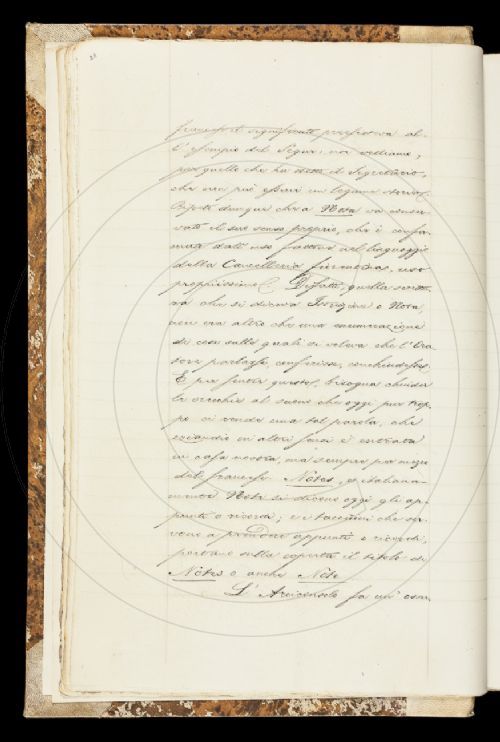 francese il significato preferiva al-
l' esempio del Segur: noi vediamo,
per quello che ha detto il Segretario,
che non può essere un legame
Cosicché dunque che a Nota va conser-
vato il suo senso proprio, che è confer-
mato dall' uso fattone nel linguaggio
della Cancelleria fiorentina, uso
propriissimo. Difatti, quella scrittu-
ra che si diceva Istruzione o Nota,
non era altro che una enumerazione
di cose sulle quali si voleva che l' Ora-
tore parlasse, conferisse, conchiudesse.
E per far questo, bisogna chiuder
le orecchie al suono che oggi pur trop-
po ci rende una tal parola, che
eziandio in altri sensi è entrata
in casa nostra, ma sempre per mezzo
del francese. Notes, e italiana-
mente Note si dicono oggi gli ap-
punti o ricordi; e i taccuini che ser-
vono a prendere appunti e ricordi,
portano sulla coperta il titolo di
Notes o anche Note.
L' Arciconsolo fa un' osser-